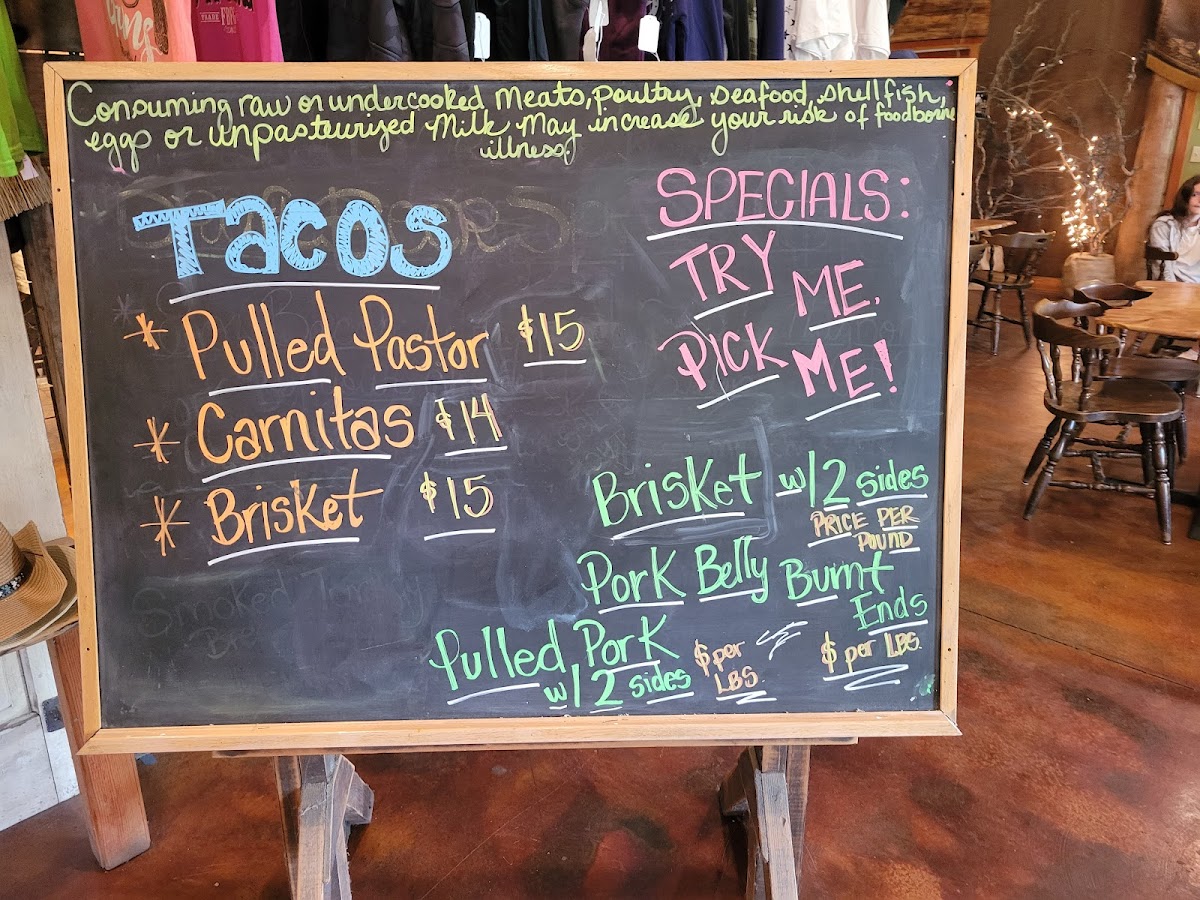 Consuming raw or undercooked Meats, poultry, seafood, shellfish,
eggs or unpasteurized Milk May increase your risk of foodborne
illness.
TACOS
* Pulled Pastor $15
* Carnitas $14
* Brisket $15
SPECIALS:
TRY ME,
PICK ME!
Brisket w/2 sides
PRICE PER
POUND
Pork Belly Burnt
Ends
$ per LBS.
Pulled Pork
w/2 sides
$ per
LBS.
Smoked